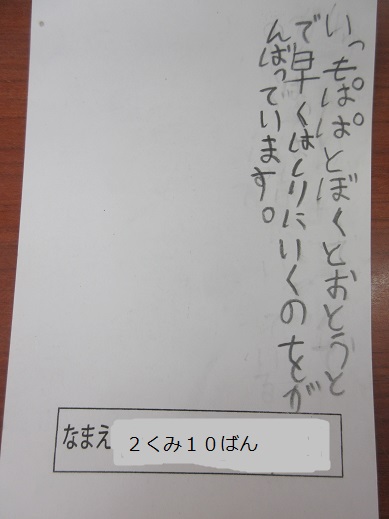 いっもぱぱとぼくとおとうと
で早くはしりにいくのをが
んばっています。
なまえ
２くみ１０ばん